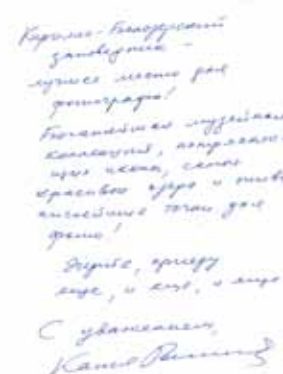 Кирилло-Белозерский
заповедник -
лучшее место для
фотографа!
Богатейшая музейная
коллекция, потрясаю-
щие иконы, самое
красивое озеро и
точки для
фото!
приеду
еще, и еще, и еще
С уважением,